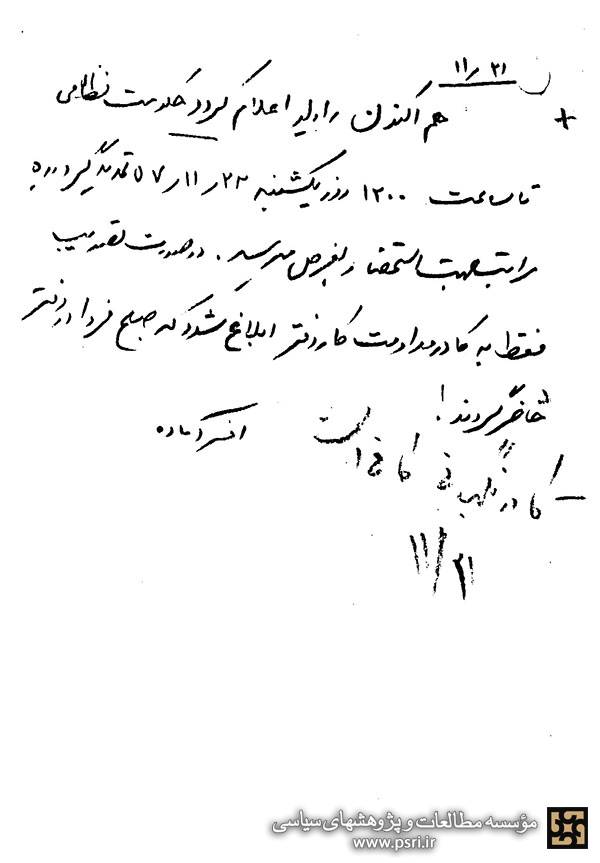 ۲۱ / ۱۱
هم اکنون رادیو اعلام کرد که حکومت نظامی
تا ساعت ۱۲۰۰ روز یکشنبه ۲۲ / ۱۱ / ۵۷ تمدید گردیده
مراتب جهت استحضار بعرض میرسد . در صورت تصویب
فقط به کادر مداومت کار دفتر ابلاغ شود که صبح فردا در دفتر
حاضر گردند !
افسر آماده
– کادر نگهبانی کافی است
۲۱ / ۱۱
مؤسسه مطالعات و پژوهشهای سیاسی
www.psri.ir